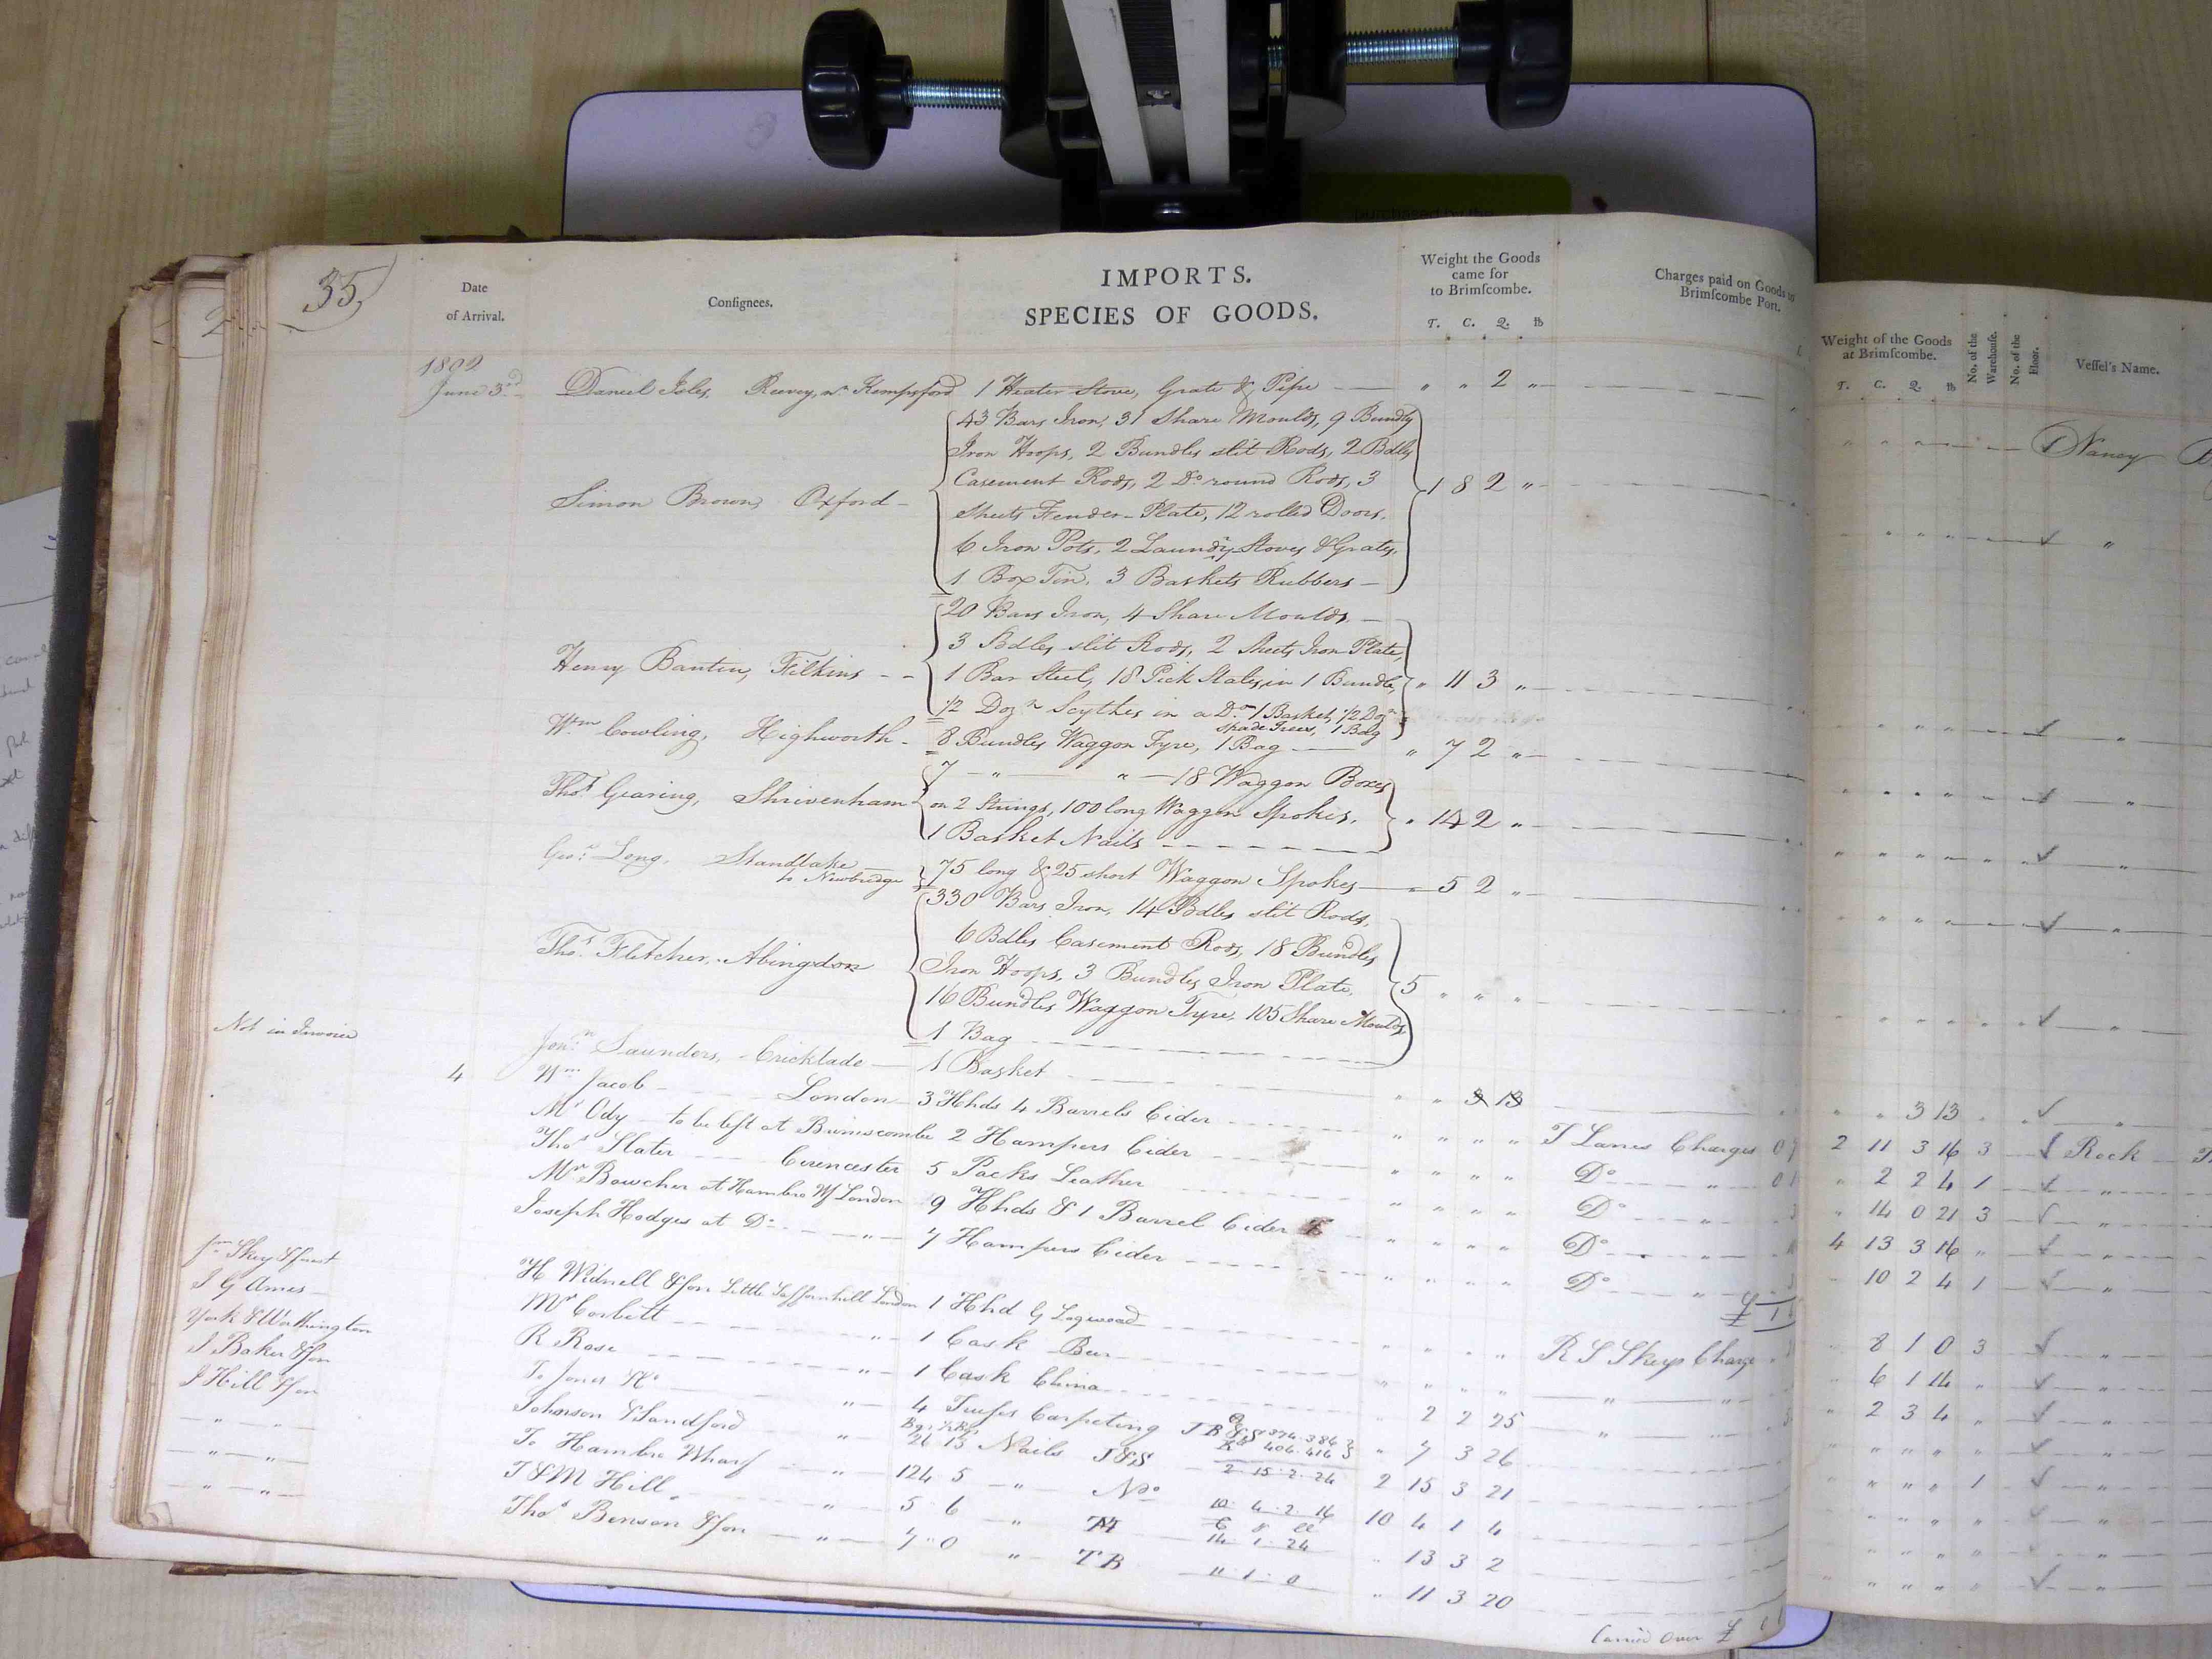 35
Date of Arrival.
Consignees.
IMPORTS.
SPECIES OF GOODS.
Weight the Goods came for to Brimscombe.
T. C. Q. lb
Charges paid on Goods to Brimscombe Port.
Weight of the Goods at Brimscombe.
T. C. Q. lb
No. of the Warehouse.
No. of the Floor.
Vessel's Name.
1802
June 3rd Daniel Iles, Kempsford 1 Heater Stove, Grate & Pipe " " 2 " Nancy
43 Bars Iron, 31 Share Moulds, 9 Bundles
Iron Hoops, 2 Bundles slit Rods, 2 Bdles
Casement Rods, 2 Do round Rods, 3
Simon Brown, Oxford 1 8 2 "
Sheets Fender Plate, 12 rolled Doors,
6 Iron Pots, 2 Laundry Stoves & Grates,
1 Box Tin, 3 Baskets Rubbers
20 Bars Iron, 4 Share Moulds
3 Bdles slit Rods, 2 Sheets Iron Plate,
Henry Bantin, Filkins 1 Bar Steel, 18 Pick Stales in 1 Bundle, " 11 3 "
1/2 Dozn Scythes in a Do 1 Basket, 1/2 Dozn
Spade Trees, 1 Bag
Wm Cowling, Highworth 8 Bundles Waggon Tyre, 1 Bag " 7 2 "
7 " " 18 Waggon Boxes
Thos Gearing, Shrivenham on 2 Strings, 100 long Waggon Spokes, " 14 2 "
1 Basket Nails
Geo: Long, Standlake to Newbridge 75 long & 25 short Waggon Spokes " 5 2 "
330 Bars Iron, 14 Bdles slit Rods,
6 Bdles Casement Rods, 18 Bundles
Thos Fletcher, Abingdon Iron Hoops, 3 Bundles Iron Plate, 5 " " "
16 Bundles Waggon Tyre, 105 Share Moulds
1 Bag
Not in Invoice Jon: Saunders, Cricklade 1 Basket " " 3 13 " " 3 13
4 Wm Jacob London 3 Hhds 4 Barrels Cider " " " " T Lanes Charges 2 11 3 16 3 Rock
Mr Ody to be left at Brimscombe 2 Hampers Cider " " " " Do " 2 2 4 1
Thos Slater Cirencester 5 Packs Leather " " " " Do " 14 0 21 3
Mr Bowcher at Hambro Wf London 9 Hhds & 1 Barrel Cider " " " " Do 4 13 3 16
Joseph Hodges at Do " 7 Hampers Cider " " " " Do 10 2 4 1
£ 1
H Widnell & Son Little Saffronhill London 1 Hhd Logwood " " " " R S Skeys Charge 8 1 0 3
J G Ames Mr Corbett " 1 Cask " " " " 6 1 14
York & Worthington R Rose " 1 Cask China " 2 2 25 2 3 4
J Baker & Son T. Jones " 4 Trusses Carpeting 374.384 406.416 " 7 3 26
J Hill & Son Johnson & Sandford " 26 13 Nails J&S 2 15 2 24 2 15 3 21 1
" " To Hambro Wharf " 124 5 " No 10 4 2 16 10 4 1 4
" " T & M Hill " 5 6 " 14 1 24 " 13 3 2
" " Thos Benson & Son " 7 0 " TB 11 1 0 " 11 3 20
Carried Over £